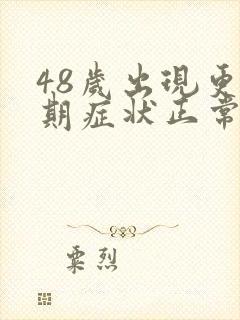 48歲出現更
期症狀正常
粟烈